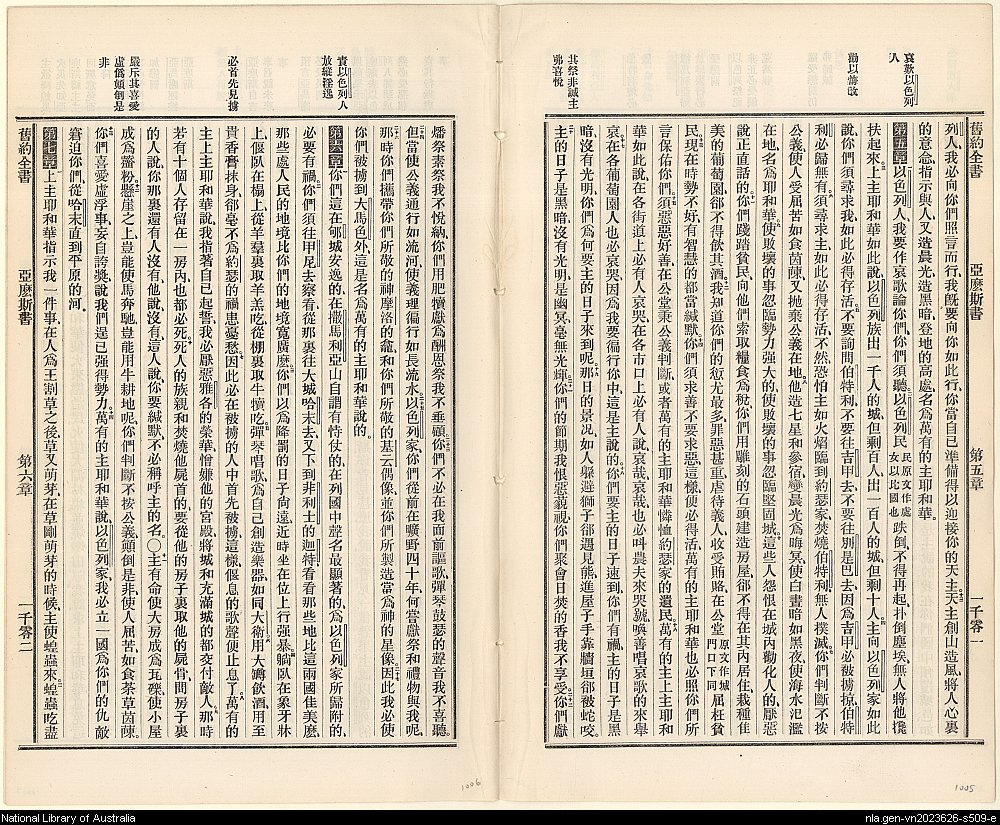 哀歎以色列
人
勸以悔改
其祭非誠主
弗喜悅
舊約全書 亞麽斯書 第五章 一千零一
列人、我必向你們照言而行、我旣要向你如此行、你當自己準備得以迎接你的天主、天主創山造風、將人心裏
的意念、指示與人、又造晨光、造黑暗、登地的高處、名爲萬有的主耶和華。
第五章 以色列人、我要作哀歌論你們、你們須聽、以色列民 民原文作處女以比國也 跌倒、不得再起、扑倒塵埃、無人將他攙
扶起來、上主耶和華如此說、以色列族出一千人的城、但剩百人、出一百人的城、但剩十人、主向以色列家如此
說、你們須尋求我、如此必得存活、不要詢問伯特利、不要往吉甲去、不要往別是巴去、因爲吉甲必被擄掠、伯特
利必歸無有、須尋求主、如此必得存活、不然、恐怕主如火焰臨到約瑟家、焚燒伯特利、無人撲滅、你們判斷不按
公義、使人受屈苦如食茵蔯、又抛棄公義在地、他造七星和參宿、變晨光爲晦冥、使白晝暗如黑夜、使海水氾濫
在地、名爲耶和華、使敗壞的事忽臨勢力强大的、使敗壞的事忽臨堅固城、這些人怨恨在城內勸化人的、厭惡
說正直話的、你們踐踏貧民、向他們索取糧食爲稅、你們用雕刻的石頭建造房屋、卻不得在其內居住、栽種佳
美的葡萄園、卻不得飮其酒、我知道你們的愆尤最多、罪惡甚重、虐待義人、收受賄賂、在公堂 原文作城門口下同 屈枉貧
民、現在時勢不好、有智慧的都當緘默、你們須求善、不要求惡、這樣便必得活、萬有的主耶和華、也必照你們所
言保佑你們、須惡惡好善、在公堂秉公義判斷、或者萬有的上主耶和華憐恤約瑟家的遺民、萬有的上主耶和
華如此說、在各街道上、必有人哀哭、在各市口上、必有人說、哀哉哀哉、也必呌農夫來哭號、喚善唱哀歌的來舉
哀、在各葡萄園人也必哀哭、因爲我要徧行你中、這是主說的、你們要主的日子速到、你們有禍、主的日子是黑
暗、沒有光明、你們爲何要主的日子來到呢、那日的景况、如人躱避獅子、卻遇見熊、進屋子手靠牆垣、卻被蛇咬、
主的日子是黑暗、沒有光明、是幽冥毫無光輝、你們的節期、我恨惡藐視、你們聚會日焚的香我不享受、你們獻
責以色列人
放縱淫逸
必首先見擄
嚴斥其喜愛
虛僞顚倒是
非
燔祭素祭、我不悅納、你們用肥犢獻爲酬恩祭我不垂顧、你們不必在我面前謳歌、彈琴鼓瑟的聲音我不喜聽、
但當使公義通行如流河、使義理徧行如長流水、以色列家、你們從前在曠野四十年、何嘗獻祭和禮物與我呢、
那時你們攜帶你們所敬的神摩洛的龕、和你們所敬的基云偶像、並你們所製造當爲神的星像、因此我必使
你們被擄到大馬色外、這是名爲萬有的主耶和華說的。
第六章 你們這在郇城安逸的、在撒馬利亞山自謂有恃仗的、在列國中聲名最顯著的、爲以色列家所歸附的、
必要有禍、你們須往甲尼去察看、從那裏往大城哈末去、又下到非利士的迦特看看、那些地比這兩國佳美麽、
那些處人民的地境、比你們的地境寬廣麽、你們以爲降罰的日子尙遠、近時坐在位上行强暴、躺臥在象牙牀
上、偃臥在榻上、從羊羣裏取羊羔吃、從棚裏取牛犢吃、彈琴唱歌、爲自己創造樂器、如同大衛、用大罇飮酒、用至
貴香膏抹身、卻毫不爲約瑟的禍患憂愁、因此必在被擄的人中首先被擄、這樣、偃息的歌聲便止息了、萬有的
主上主耶和華說、我指著自己起誓、我必厭惡雅各的榮華、憎嫌他的宮殿、將城和充滿城的都交付敵人、那時
若有十個人存留在一房內、也都必死、死人的族親和焚燒他屍首的、要從他的房子裏取他的屍骨、問房子裏
的人說、你那裏還有人沒有、他說、沒有、這人說、你要緘默、不必稱呼主的名。〇主有命、使大房成爲瓦礫、使小屋
成爲薺粉、懸崖之上、豈能使馬奔馳、豈能用牛耕地呢、你們判斷不按公義、顚倒是非、使人屈苦、如食荼草茵蔯、
你們喜愛虛浮事、妄自誇獎、說我們逞己强得勢力、萬有的主耶和華說、以色列家、我必立一國爲你們的仇敵、
窘迫你們、從哈末直到平原的河。
第七章 上主耶和華指示我一件事、在人爲王割草之後、草又萌芽、在草剛萌芽的時候、主使蝗蟲來、蝗蟲吃盡
舊約全書 亞麽斯書 第六章 一千零二
1006
1005
National Library of Australia
nla.gen-vn2023626-s509-e